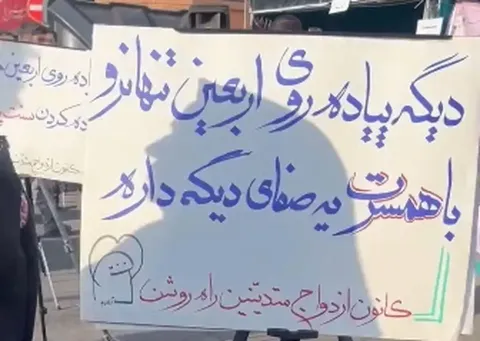 دیگه پیاده روی اربعین تنها نرو
با همسرت یه صفای دیگه داره
کانون ازدواج متدیّنین راه روشن
ده روی اربعین
ده کردن سنت
کانون ازدواج متدین